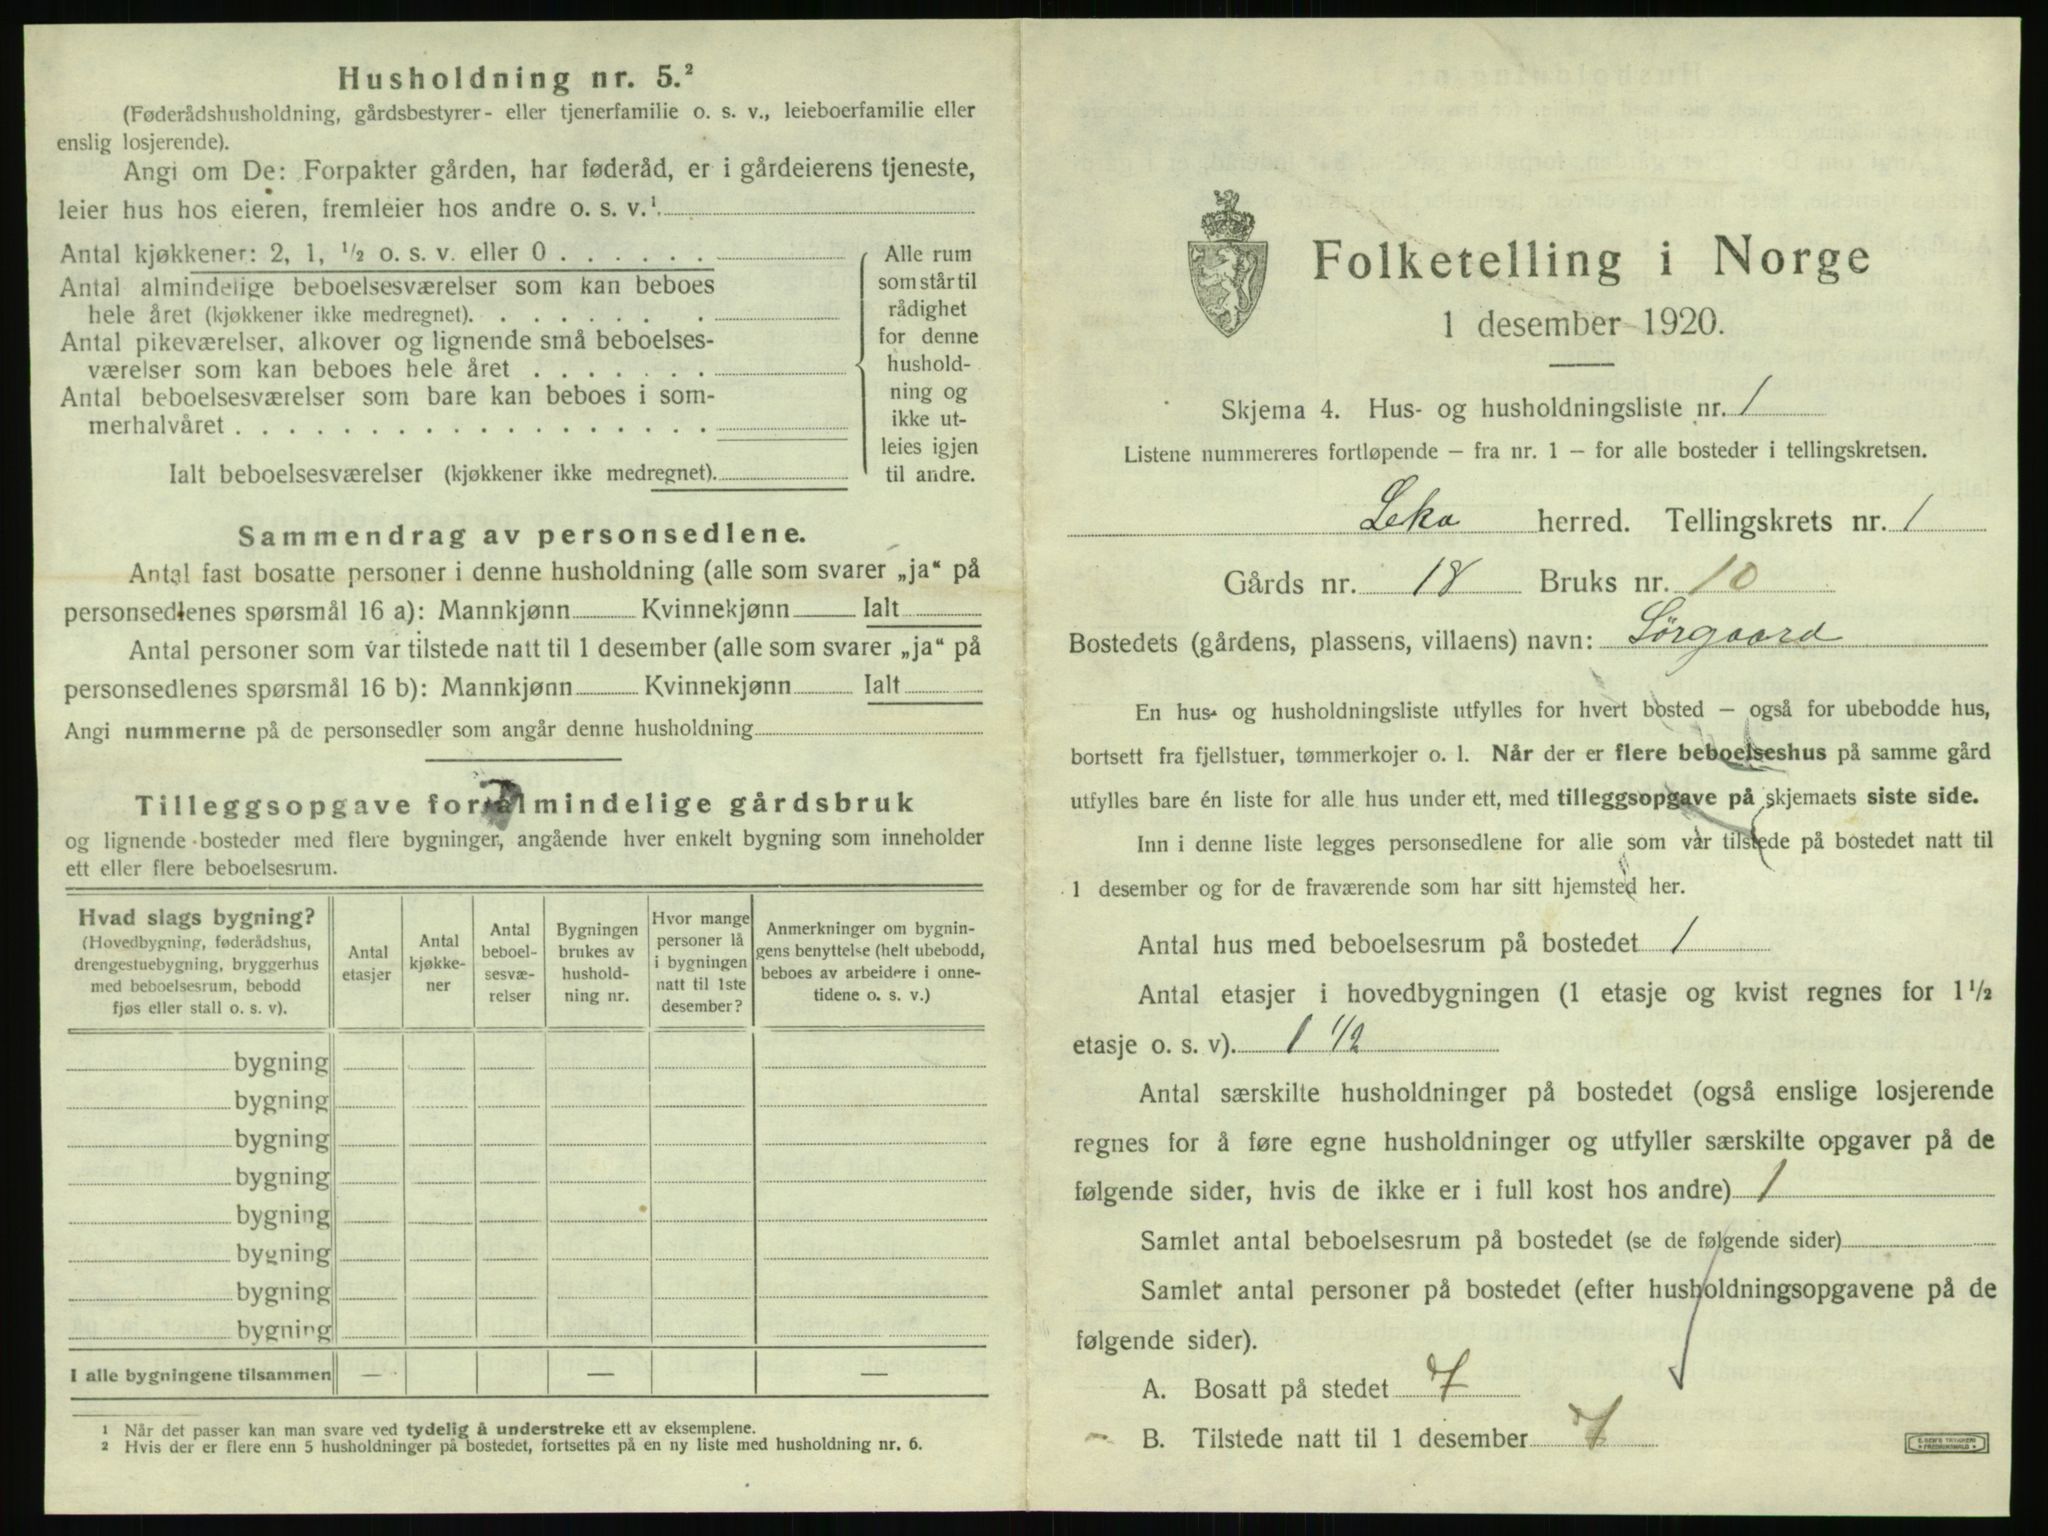 Husholdning nr. 5.²
(Føderådshusholdning, gårdsbestyrer- eller tjenerfamilie o. s. v., leieboerfamilie eller
enslig losjerende).
Angi om De: Forpakter gården, har føderåd, er i gårdeierens tjeneste,
leier hus hos eieren, fremleier hos andre o. s. v.¹
Antal kjøkkener: 2, 1, ½ o. s. v. eller 0
Antal almindelige beboelsesværelser som kan beboes
hele året (kjøkkener ikke medregnet).
Antal pikeværelser, alkover og lignende små beboelses-
værelser som kan beboes hele året
Antal beboelsesværelser som bare kan beboes i som-
merhalvåret
Ialt beboelsesværelser (kjøkkener ikke medregnet).
Alle rum
som står til
rådighet
for denne
hushold-
ning og
ikke ut-
leies igjen
til andre.
Sammendrag av personsedlene.
Antal fast bosatte personer i denne husholdning (alle som svarer „ja“ på
personsedlenes spørsmål 16 a): Mannkjønn Kvinnekjønn Ialt
Antal personer som var tilstede natt til 1 desember (alle som svarer „ja“ på
personsedlenes spørsmål 16 b): Mannkjønn Kvinnekjønn Ialt
Angi nummerne på de personsedler som angår denne husholdning
Tilleggsopgave for almindelige gårdsbruk
og lignende bosteder med flere bygninger, angående hver enkelt bygning som inneholder
ett eller flere beboelsesrum.
Hvad slags bygning?
(Hovedbygning, føderådshus,
drengestuebygning, bryggerhus
med beboelsesrum, bebodd
fjøs eller stall o. s. v).
Antal
etasjer
Antal
kjøkke-
ner
Antal
beboel-
sesvæ-
relser
Bygningen
brukes av
hushold-
ning nr.
Hvor mange
personer lå
i bygningen
natt til 1ste
desember?
Anmerkninger om bygnin-
gens benyttelse (helt ubebodd,
beboes av arbeidere i onne-
tidene o. s. v.)
bygning
bygning
bygning
bygning
bygning
bygning
bygning
bygning
I alle bygningene tilsammen — — —
¹ Når det passer kan man svare ved tydelig å understreke ett av eksemplene.
² Hvis der er flere enn 5 husholdninger på bostedet, fortsettes på en ny liste med husholdning nr. 6.
Folketelling i Norge
1 desember 1920.
Skjema 4. Hus- og husholdningsliste nr. 1
Listene nummereres fortløpende – fra nr. 1 – for alle bosteder i tellingskretsen.
Leka herred. Tellingskrets nr. 1
Gårds nr. 18 Bruks nr. 10
Bostedets (gårdens, plassens, villaens) navn: Sörgaard
En hus- og husholdningsliste utfylles for hvert bosted – også for ubebodde hus,
bortsett fra fjellstuer, tømmerkojer o. l. Når der er flere beboelseshus på samme gård
utfylles bare én liste for alle hus under ett, med tilleggsopgave på skjemaets siste side.
Inn i denne liste legges personsedlene for alle som var tilstede på bostedet natt til
1 desember og for de fraværende som har sitt hjemsted her.
Antal hus med beboelsesrum på bostedet 1
Antal etasjer i hovedbygningen (1 etasje og kvist regnes for 1½
etasje o. s. v). 1 1/2
Antal særskilte husholdninger på bostedet (også enslige losjerende
regnes for å føre egne husholdninger og utfyller særskilte opgaver på de
følgende sider, hvis de ikke er i full kost hos andre) 1
Samlet antal beboelsesrum på bostedet (se de følgende sider)
Samlet antal personer på bostedet (efter husholdningsopgavene på de
følgende sider).
A. Bosatt på stedet 7
B. Tilstede natt til 1 desember 7